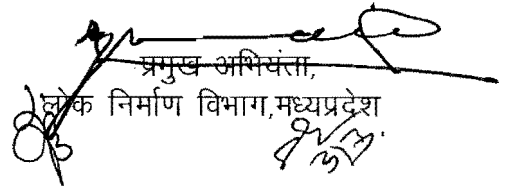 प्रमुख अभियंता,
लोक निर्माण विभाग,मध्यप्रदेश